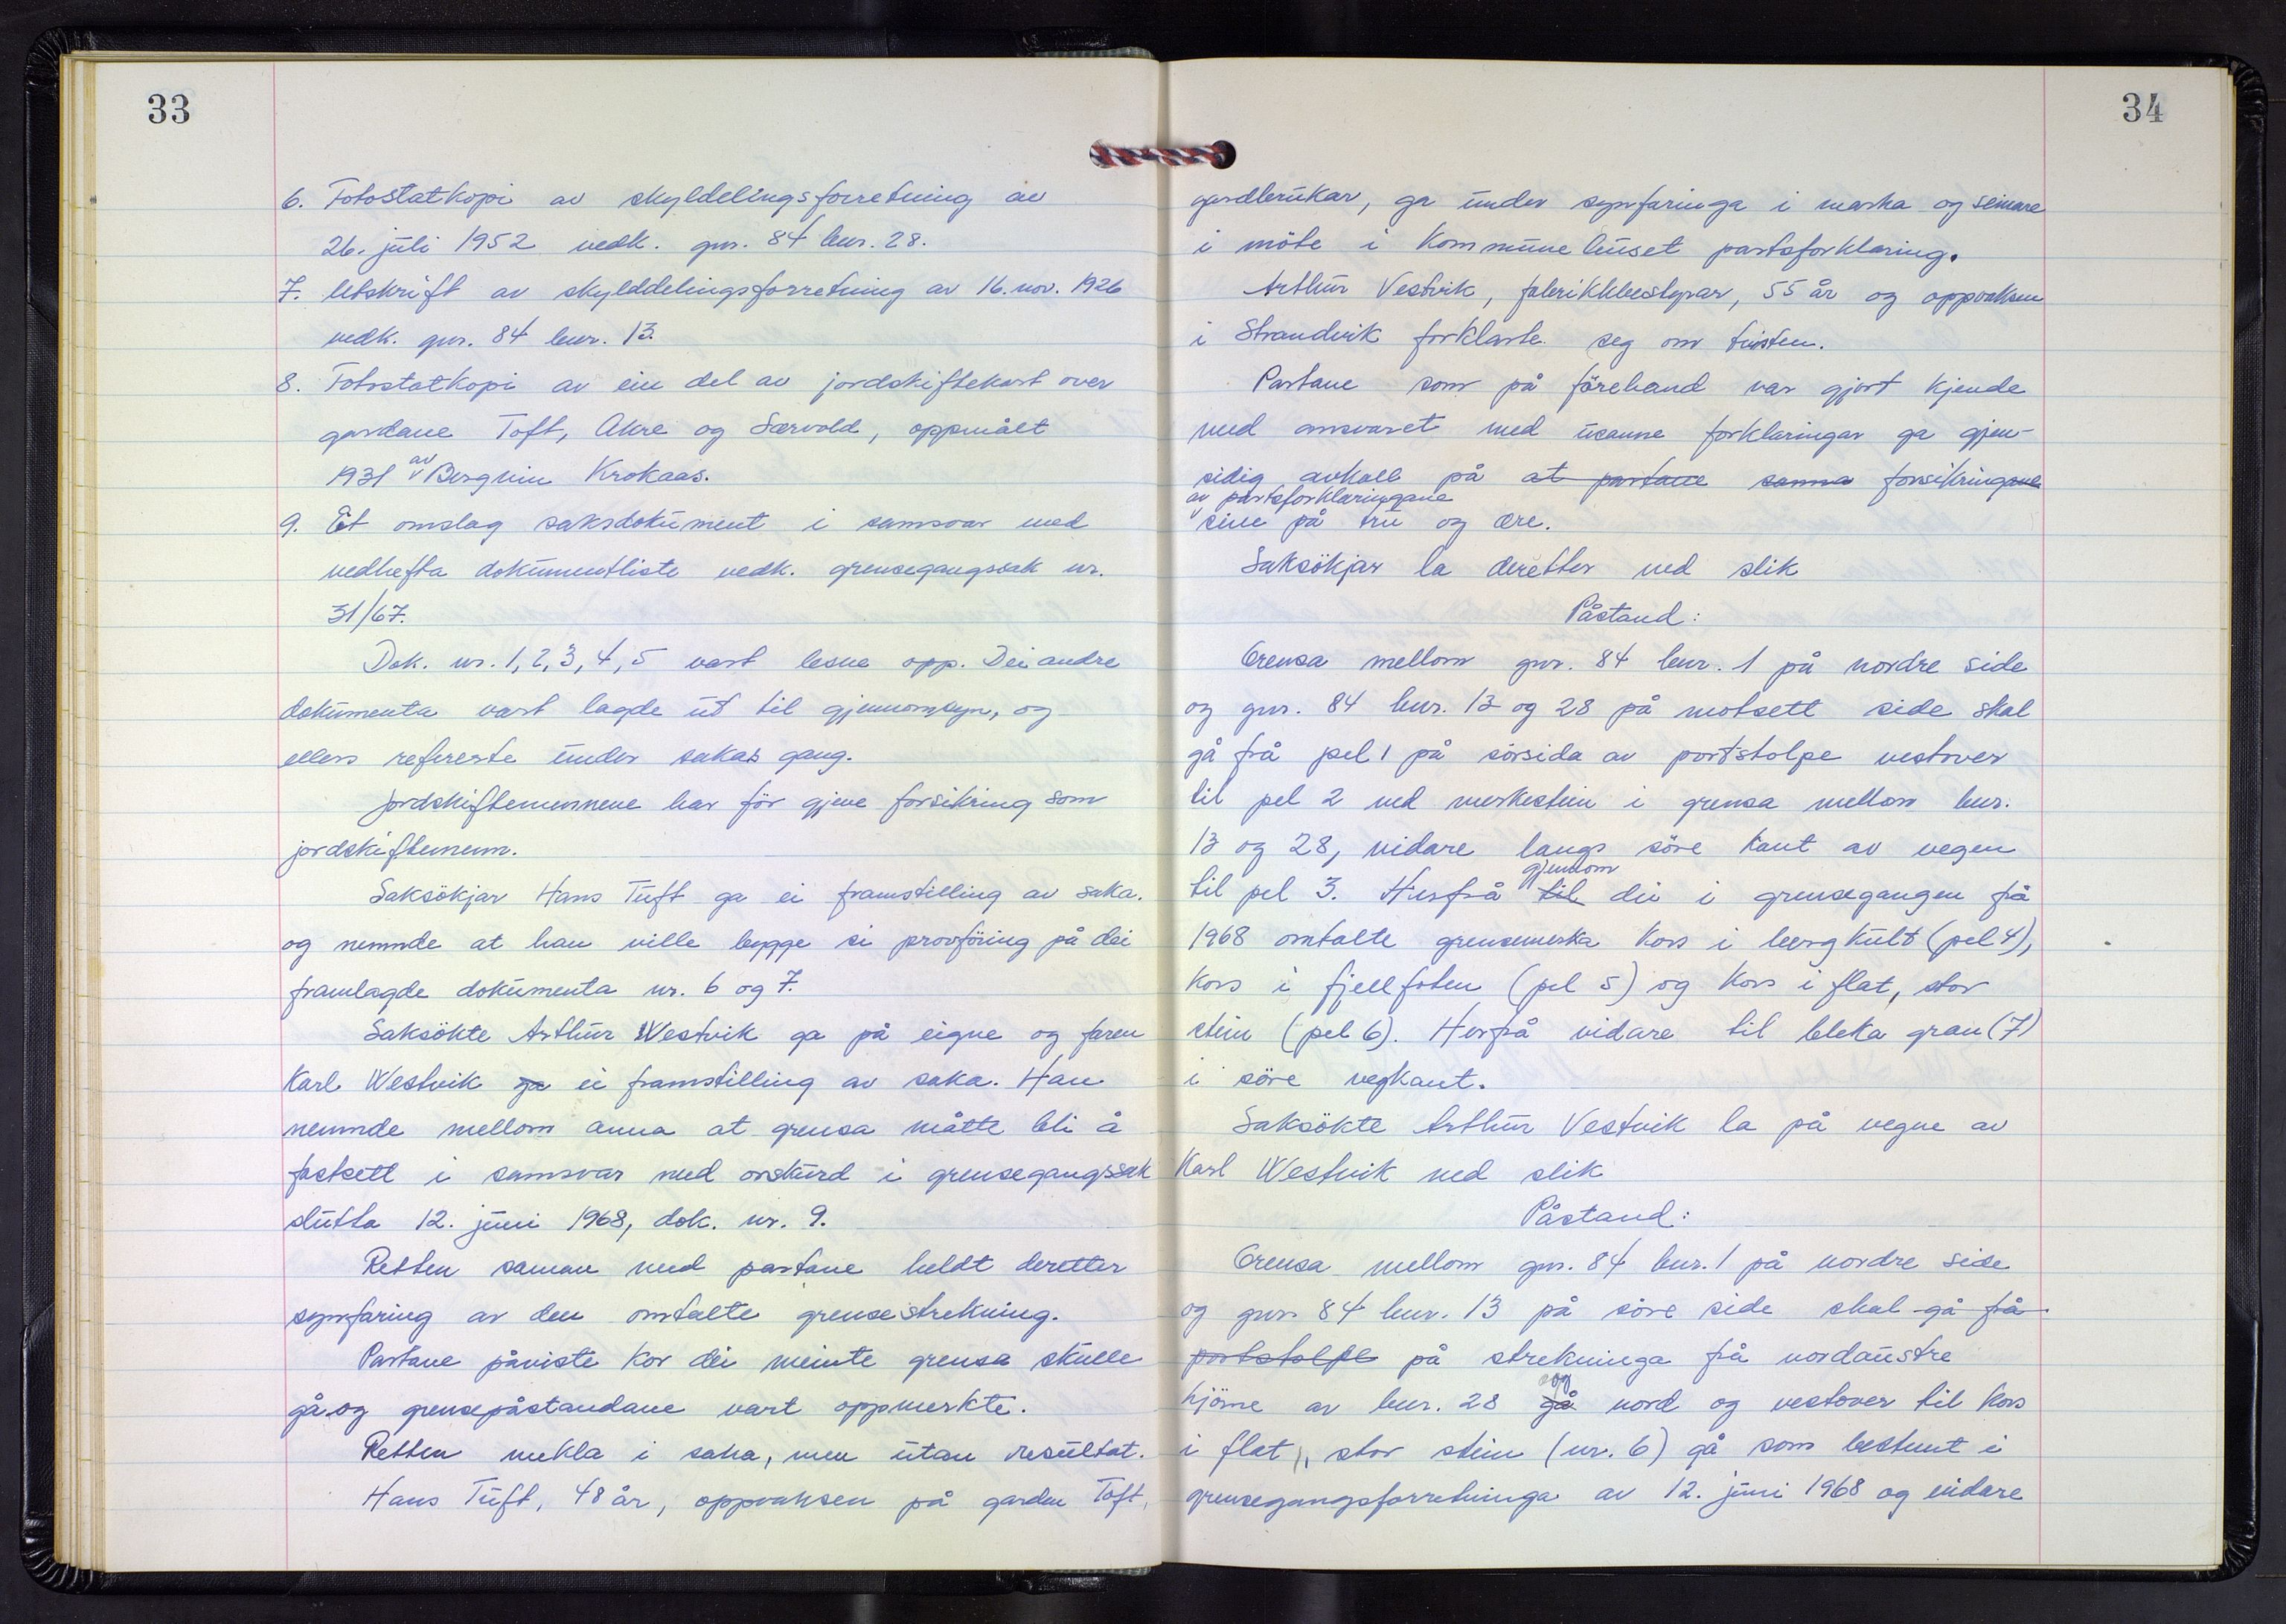 33
6. Fotostatkopi av skyldelingsforretning av
26. juli 1952 vedk. gnr. 84 bnr. 28.
7. Utskrift av skylddelingsforretning av 16. nov. 1926
vedk. gnr. 84 bnr. 13.
8. Fotostatkopi av ein del av jordskiftekart over
gardane Toft, Akre og Særvold, oppmålt
1931 av Bergnin Krokaas.
9. Et omslag saksdokument i samsvar med
vedhefta dokumentliste vedk. grensegangssak nr.
31/67.
Dok. nr. 1, 2, 3, 4, 5 vart lesne opp. Dei andre
dokumenta vart lagde ut til gjennomsyn, og
ellers refererte under sakas gang.
Jordskiftemennene har før gjeve forsikring som
jordskiftemenn.
Saksökjar Hans Tuft ga ei framstilling av saka.
og nemnde at han ville bygge si provföring på dei
framlagde dokumenta nr. 6 og 7.
Saksökte Arthur Westvik ga på eigne og faren
Karl Westvik ga ei framstilling av saka. Han
nemnde mellom anna at grensa måtte bli å
fastsett i samsvar med orskurd i grensegangssak
slutta 12. juni 1968, dok. nr. 9.
Retten saman med partane heldt deretter
synfaring av den omtalte grensestrekning.
Partane påviste kor dei meinte grensa skulle
gå og grensepåstandane vart oppmerkte.
Retten mekla i saka, men utan resultat.
Hans Tuft, 48 år, oppvaksen på garden Toft,
34
gardbrukar, ga under synfaringa i marka og seinare
i möte i Kommunehuset partsforklaring.
Arthur Vestvik, fabrikkbestyrar, 55 år og oppvaksen
i Strandvik forklarte seg om tvisten.
Partane som på förehand var gjort kjende
med ansvaret med usanne forklaringar ga gjen-
sidig avkall på at partane sanna forsikringane
av partsforklaringane
sine på tru og ære.
Saksökjar la deretter ned slik
Påstand:
Grensa mellom gnr. 84 bnr. 1 på nordre side
og gnr. 84 bnr. 13 og 28 på motsett side skal
gå frå pel 1 på sörsida av portstolpe vestover
til pel 2 ved merkestein i grensa mellom bnr.
13 og 28, vidare langs söre kant av vegen
til pel 3. Herfrå til gjennom dei i grensegangen frå
1968 omtalte grensemerka kors i bergkult (pel 4),
kors i fjellfoten (pel 5) og kors i flat, stor
stein (pel 6). Herfrå vidare til bleka gran (7)
i söre vegkant.
Saksökte Arthur Vestvik la på vegne av
Karl Westvik ned slik
Påstand:
Grensa mellom gnr. 84 bnr. 1 på nordre side
og gnr. 84 bnr. 13 på söre side skal gå frå
portstolpe på strekninga frå nordaustre
hjörne av bnr. 28 gå og nord og vestover til kors
i flat, stor stein (nr. 6) gå som bestemt i
grensegangsforretninga av 12. juni 1968 og vidare